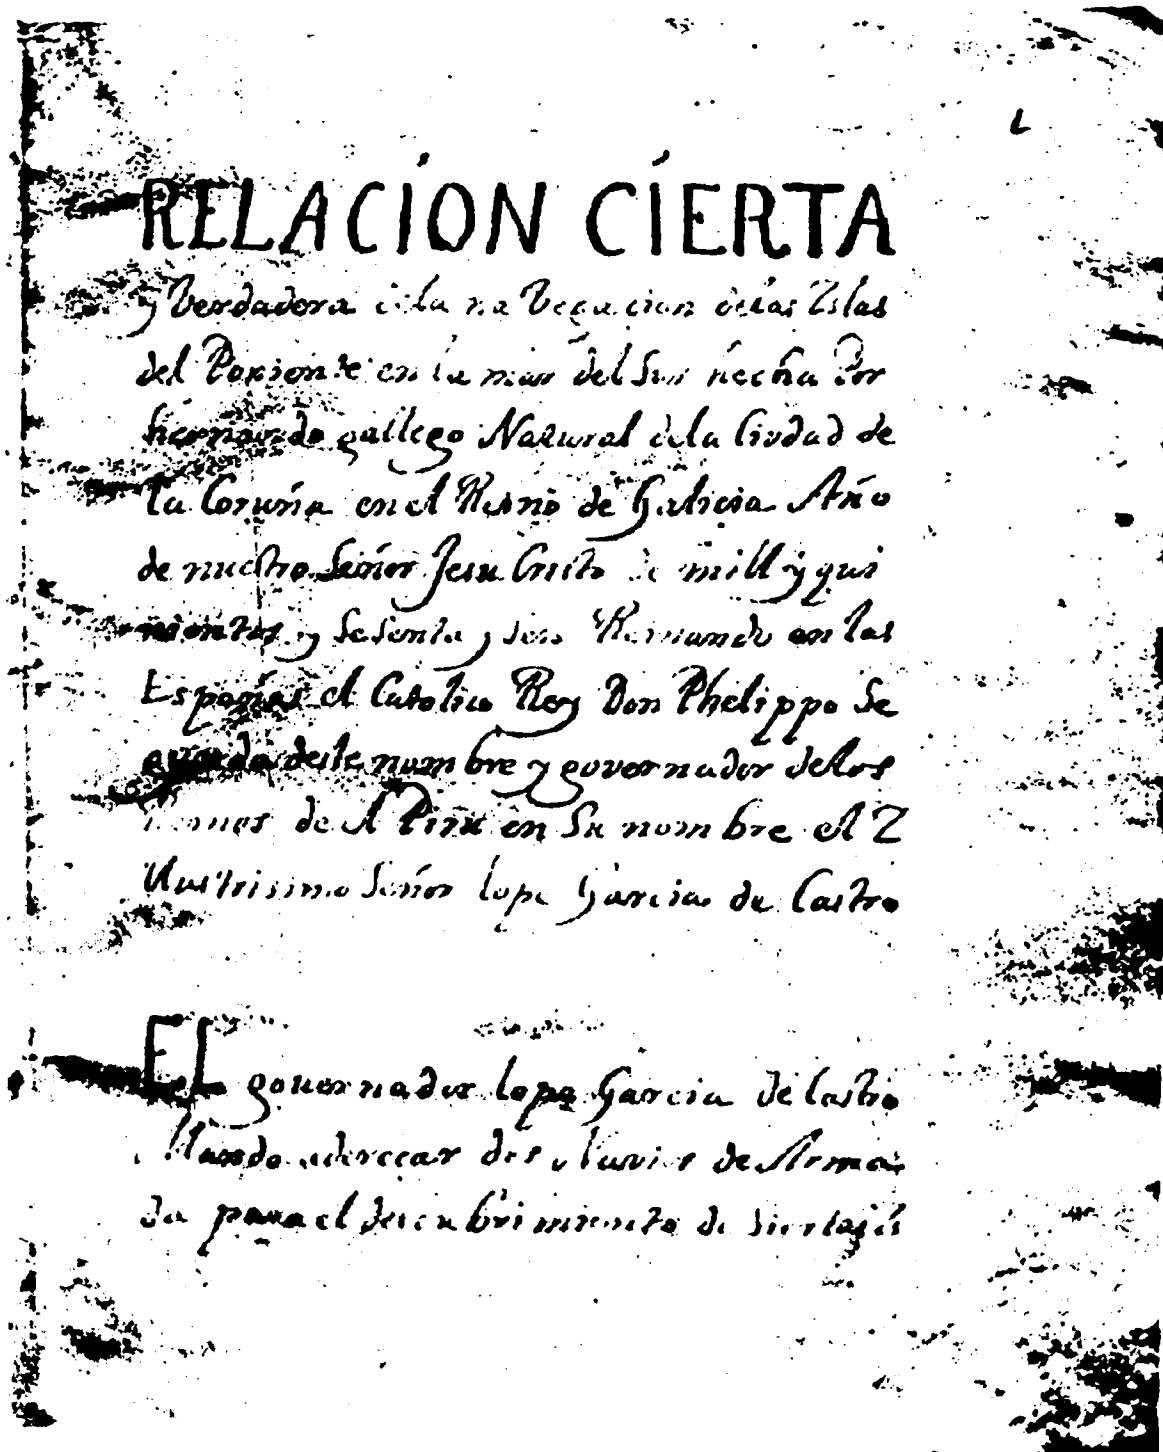 RELACION CIERTA
y Verdadera dela naVegacion delas Islas
del Poniente en la mar del Sur hecha Por
hernando gallego Natural dela Ciudad de
la Coruña en el Reino de Galicia Año
de nuestro Señor Jesu Cristo de mill y qui
nientos y Sesenta y seis Reinando en las
Españas el Catolico Rey Don Phelippo Se
gundo deste nombre y governador delos
Reinos de el Piru en Su nombre el I
llustrisimo Señor lope Garcia de Castro
EL governador lope Garcia de Castro
Mando aderecar dos Navios de Arma
da para el descubrimiento de siertas is